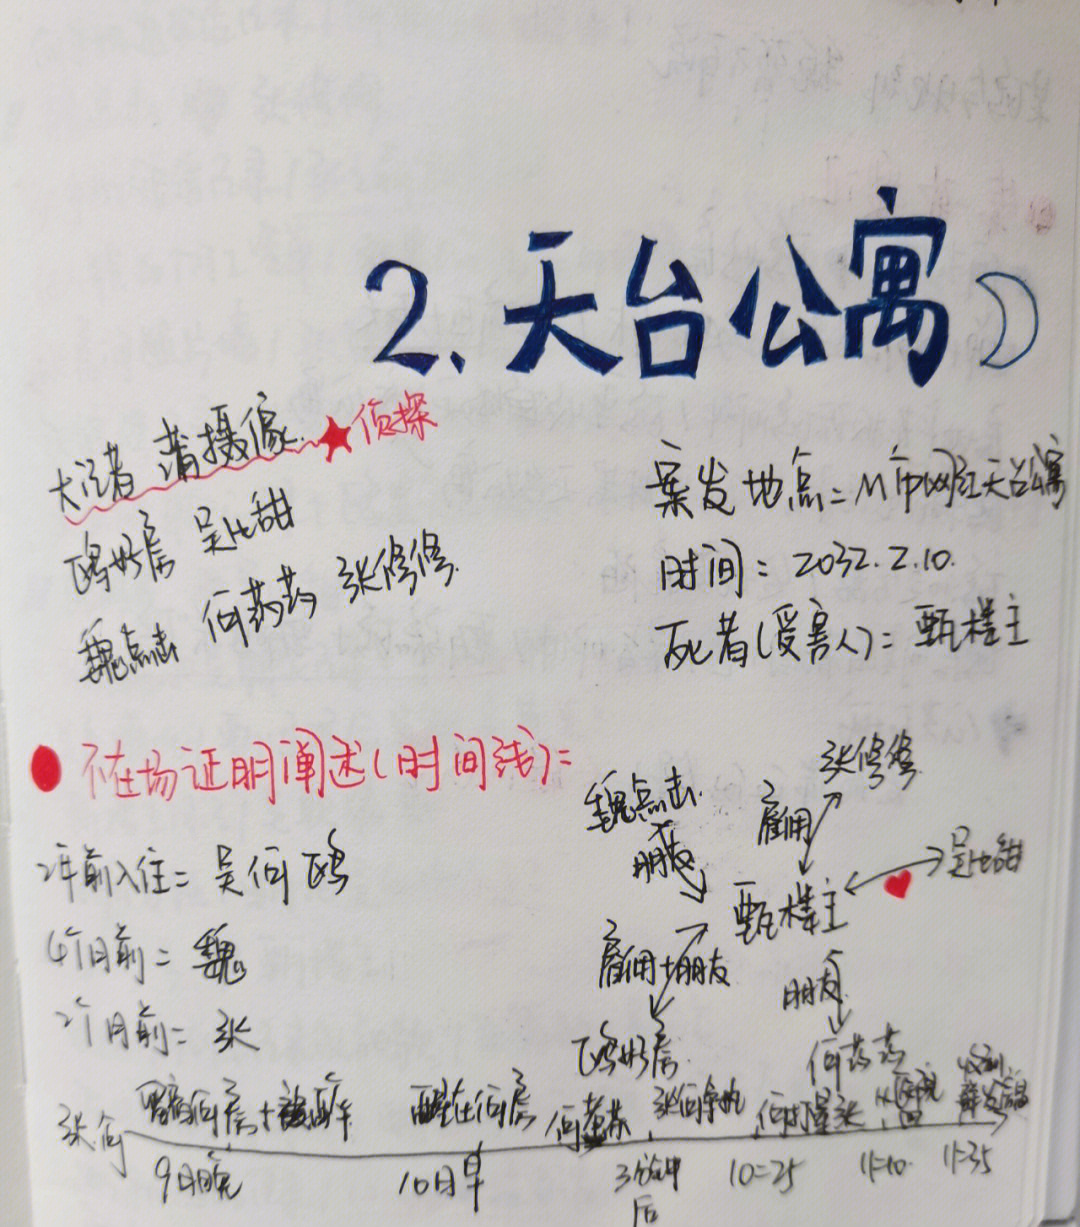 2.天台公寓
大记者 蒲摄像 ★侦探
鸥好房 吴比甜
魏点击 何药药 张修修
案发地点=M市网红天台公寓
时间=2032.2.10.
死者(受害人)=甄楼主
不在场证明阐述(时间线)=
2年前入住=吴何鸥
4个月前=魏
2个月前=张
魏点击
朋友
张修修
雇佣
吴比甜
甄楼主
雇佣+朋友
鸥好房
朋友
何药药
张何
9日晚
醒在何房
10日早
3分钟后
10=25
11=10
11=35